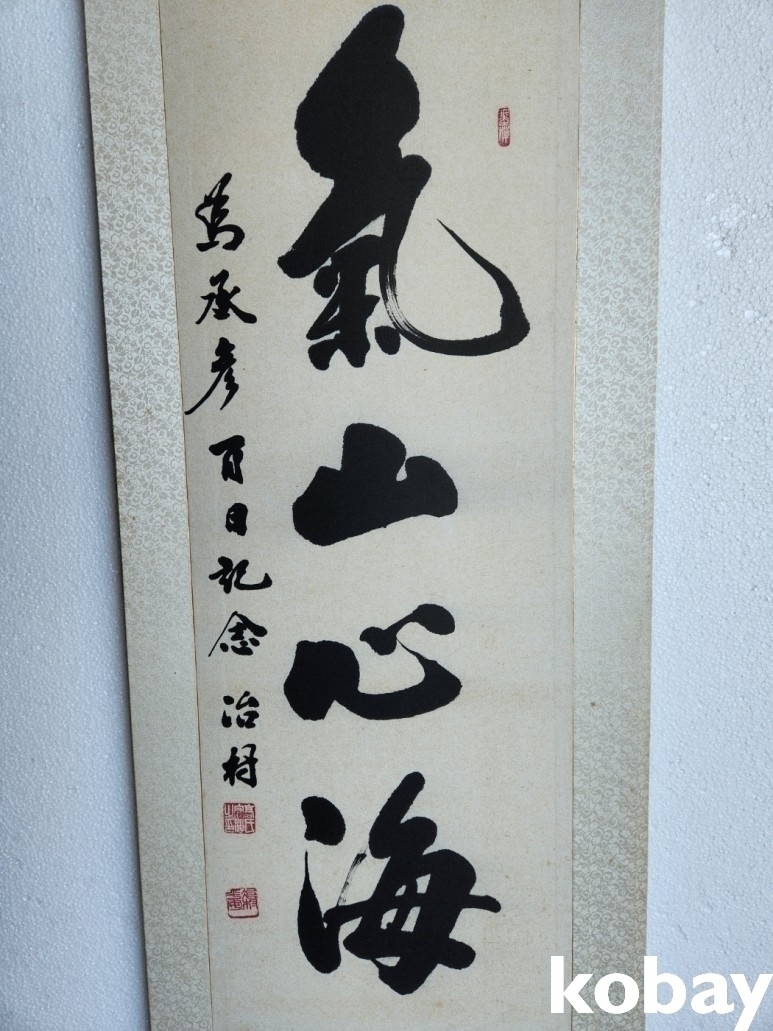 氣山心海
為承彦百日記念 治村
kobay